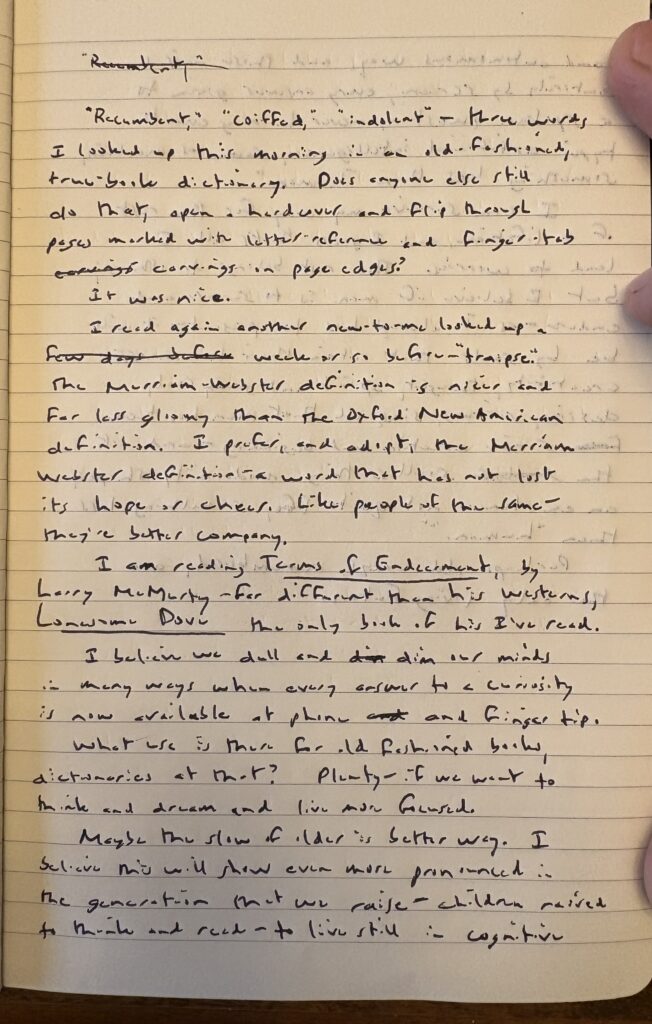 "Recumbent,"
"Recumbent," "coiffed," "indolent" – three words
I looked up this morning in an old-fashioned,
true-book dictionary. Does anyone else still
do that, open a hardcover and flip through
pages marked with letter-reference and finger-tab
carvings carvings on page edges?
It was nice.
I read again another new-to-me looked up a
few days before week or so before – "traipse."
The Merriam-Webster definition is nicer and
far less gloomy than the Oxford New American
definition. I prefer, and adopt, the Merriam
Webster definition – a word that has not lost
its hope or cheer. Like people of the same –
they're better company.
I am reading Terms of Endearment, by
Larry McMurty – far different than his westerns,
Lonesome Dove the only book of his I've read.
I believe we dull and dim dim our minds
in many ways when every answer to a curiosity
is now available at phone and and finger tip.
What use is there for old fashioned books,
dictionaries at that? Plenty – if we want to
think and dream and live more focused.
Maybe the slow of older is better way. I
believe this will show even more pronounced in
the generation that we raise – children raised
to think and read – to live still in cognitive